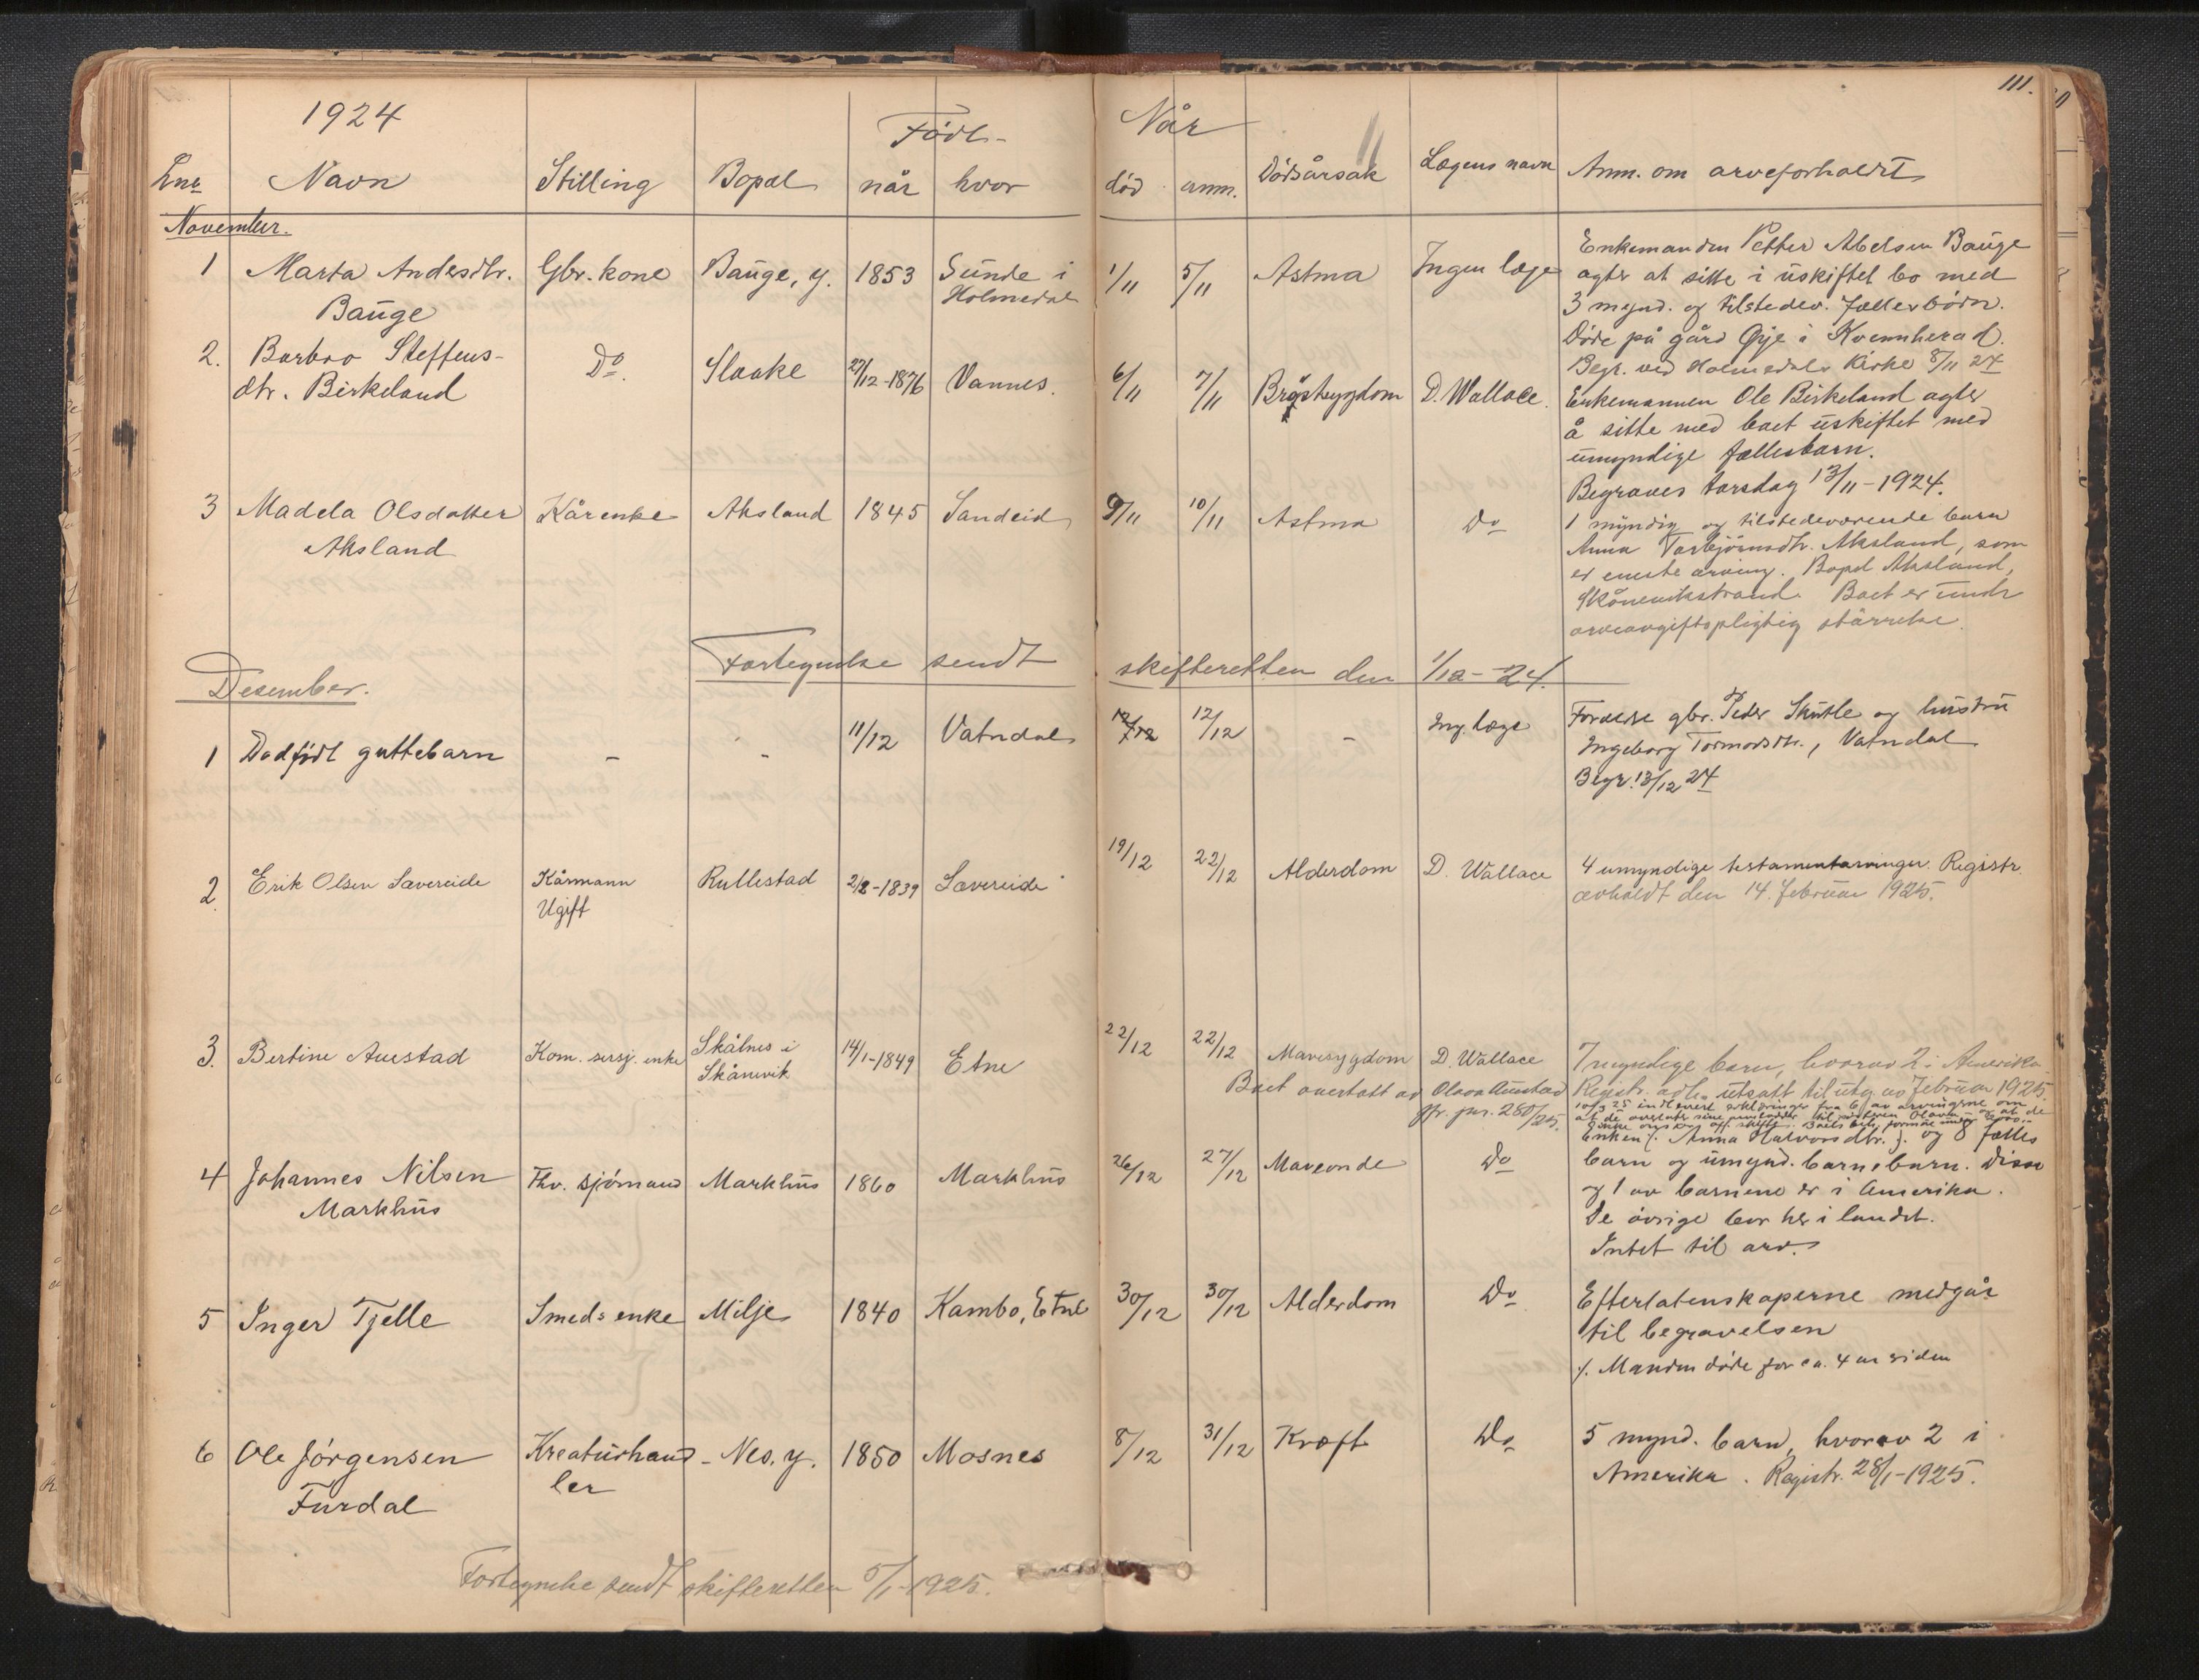 111.
1924
Født-
Når
Lnr Navn Stilling Bopæl når hvor død anm. Dødsårsak Lægens navn Anm. om arveforholdet
November.
1 Marta Andersdtr. Gbr. kone Bauge, y. 1853 Sunde i 1/11 5/11 Astma Ingen læge Enkemanden Petter Abelsen Bauge
Bauge Holmedal agter at sitte i uskiftet bo med
3 mynd. og tilstedev. fællesbørn.
Døde på gård Øye i Kvennherad.
Begr. ved Holmedals Kirke 8/11 24
2. Barbro Steffens- Do. Slaake 27/12-1876 Vannes. 6/11 7/11 Brystsygdom D. Wallace. Enkemannen Ole Birkeland agter
dtr. Birkeland å sitte med boet uskiftet med
umyndige fællesbarn.
Begraves torsdag 13/11-1924.
3 Madela Olsdatter Kårenke Aksland 1845 Sandeid 9/11 10/11 Astma Do 1 myndig og tilstedeværende barn
Aksland Anna Torbjørnsdtr. Aksland, som
er eneste arving. Bopæl Aksland,
Skånevikstrand. Boet er under
arveavgiftspligtig størrelse.
Fortegnelse sendt skifteretten den 1/12-24.
Desember.
1 Dødfødt guttebarn - - 11/12 Vatndal 12/12 12/12 - Ing. læge Forældre gbr. Peder Skutle og hustru
Ingeborg Tormodsdtr., Vatndal
Begr. 13/12 24
2. Erik Olsen Sævereide Kårmann Rullestad 2/2-1839 Sævereide 19/12 22/12 Alderdom D. Wallace 4 umyndige testamentarvinger. Registr.
Ugift avholdt den 14. februar 1925.
3. Bertine Auestad Kom. sersj. enke Skålnes i Skånevik 14/1-1849 Etne 22/12 22/12 Mavesygdom D. Wallace 7 myndige barn, hvorav 2 i Amerika
Boet overtatt av Olava Auestad Registr. utsatt til utg. av februar 1925
gfr. jnr. 280/25. 10/3 25 indleveret erklæringer fra 6 av arvingerne om
at de overlater sine arvelodder til søsteren Olava og at de
4 Johannes Nilsen Fhv. sjømand Markhus 1860 Markhus 26/12 27/12 Maveonde Do Enken (: Anna Halvorsdtr. :) og 8 fælles
Markhus barn og umynd. barnebarn. Disse
og 1 av barnene er i Amerika.
De øvrige bor her i landet.
Intet til arv.
5 Inger Tjelle Smeds enke Milje 1840 Kambo, Etne 30/12 30/12 Alderdom Do Efterlatenskaperne medgår
til begravelsen
/. Manden døde for ca. 4 aar siden
6 Ole Jørgensen Kreaturhand- Nes, y. 1850 Mosnes 8/12 31/12 Kræft Do 5 mynd. barn, hvorav 2 i
Furdal ler Amerika. Registr. 28/1-1925.
Fortegnelse sendt skifteretten 5/1-1925.